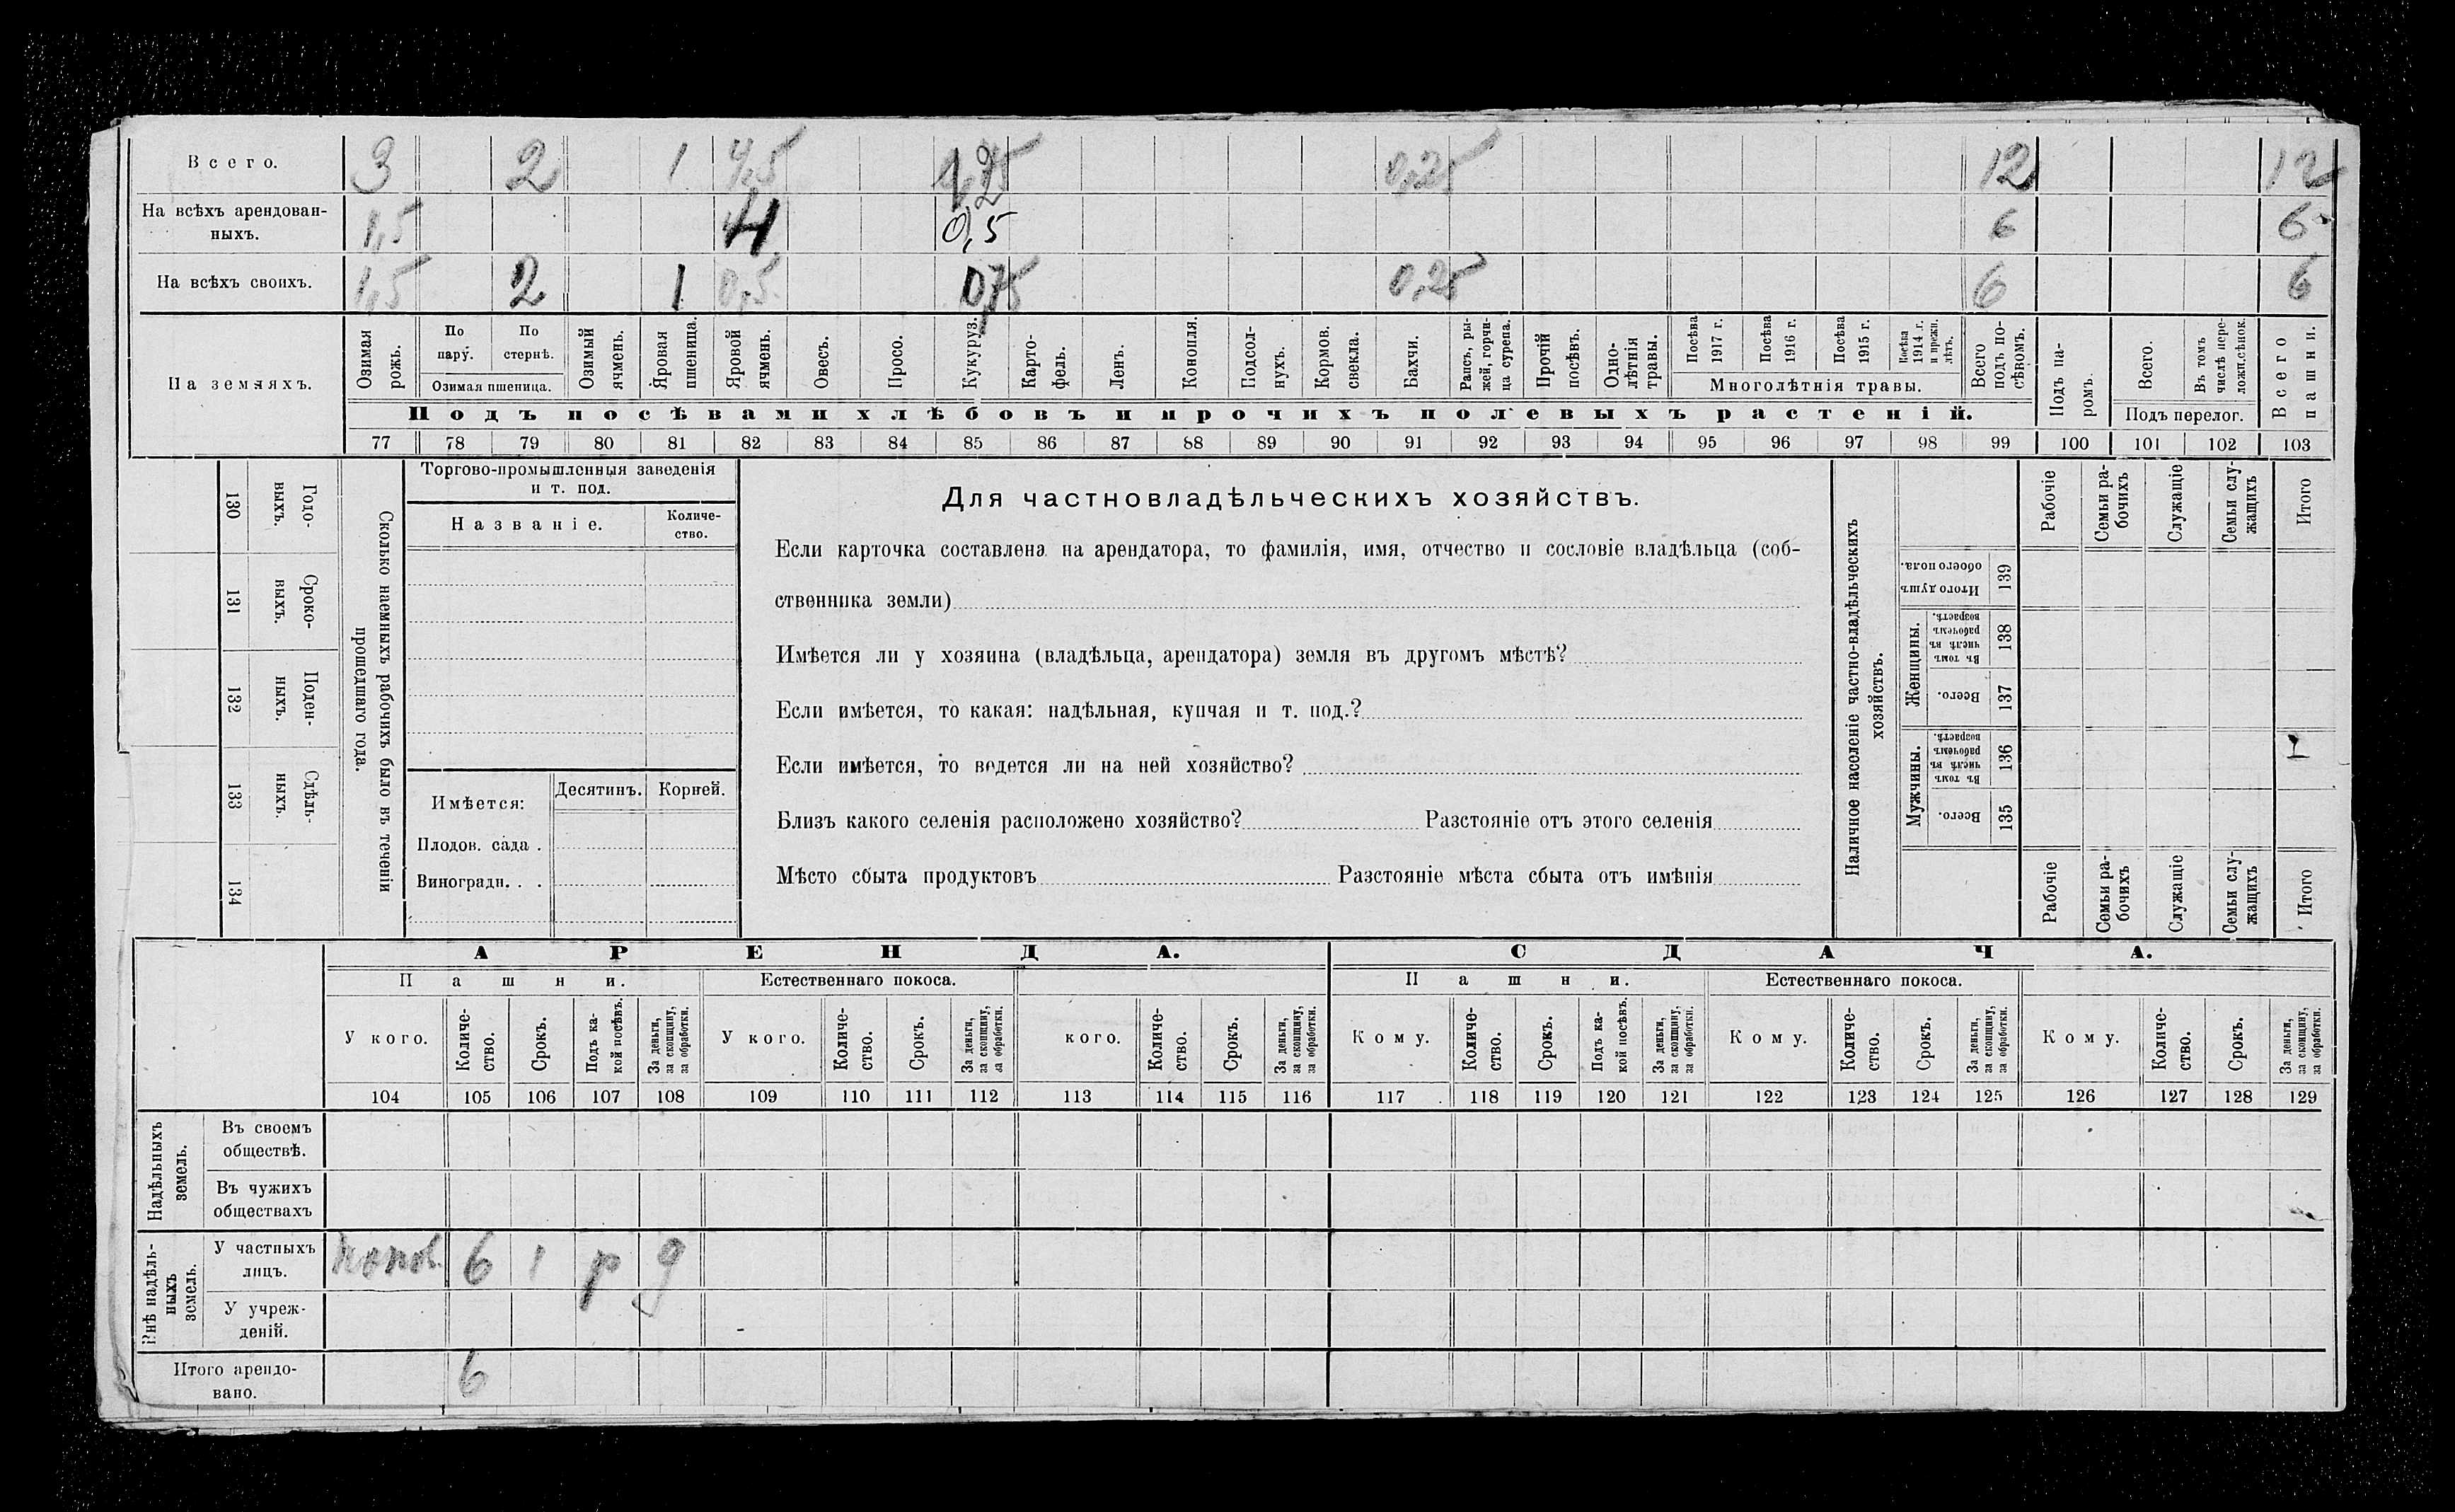 Всего. 3 2 1 4,5 0,25 12 12
На всѣхъ арендован-
ныхъ. 1,5 4 0,5 6 6
На всѣхъ своихъ. 1,5 2 1 0,5 0,75 0,25 6 6
На земляхъ.
Озимая
рожь.
По
пару.
По
стернѣ.
Озимая пшеница.
Озимый
ячмень.
Яровая
пшеница.
Яровой
ячмень.
Овесъ.
Просо.
Кукуруз.
Карто-
фель.
Ленъ.
Конопля.
Подсол-
нухъ.
Кормов.
свекла.
Бахчи.
Рапсъ, ры-
жей, горчи-
ца сурепа.
Прочій
посѣвъ.
Одно-
лѣтнія
травы.
Посѣва
1917 г.
Посѣва
1916 г.
Посѣва
1915 г.
Посѣва
1914 г.
и прежн.
лѣтъ.
Многолѣтнія травы.
Всего
подъ по-
сѣвомъ.
Подъ па-
ромъ.
Всего.
Въ томъ
числѣ пере-
ложн.сѣнок.
Подъ перелог.
Всего
пашни.
Подъ посѣвами хлѣбовъ и прочихъ полевыхъ растеній.
77 78 79 80 81 82 83 84 85 86 87 88 89 90 91 92 93 94 95 96 97 98 99 100 101 102 103
130
Годо-
выхъ.
131
Сроко-
выхъ.
132
Поден-
ныхъ.
133
Сдѣль-
ныхъ.
134
Сколько наемныхъ рабочихъ было въ теченіи
прошедшаго года.
Торгово-промышленныя заведенія
и т. под.
Названіе.
Количе-
ство.
Имѣется:
Десятинъ.
Корней.
Плодов. сада .
Виноградн. . .
Для частновладѣльческихъ хозяйствъ.
Если карточка составлена на арендатора, то фамилія, имя, отчество и сословіе владѣльца (соб-
ственника земли)
Имѣется ли у хозяина (владѣльца, арендатора) земля въ другомъ мѣстѣ?
Если имѣется, то какая: надѣльная, купчая и т. под.?
Если имѣется, то ведется ли на ней хозяйство?
Близъ какого селенія расположено хозяйство? Разстояніе отъ этого селенія
Мѣсто сбыта продуктовъ Разстояніе мѣста сбыта отъ имѣнія
Наличное населеніе частно-владѣльческихъ
хозяйствъ.
Рабочіе
Семьи ра-
бочихъ
Служащіе
Семьи слу-
жащихъ
Итого
Итого душъ
обоего пола.
139
Женщины.
Въ томъ
числѣ въ
рабочемъ
возрастѣ.
138
Всего.
137
Мужчины.
Въ томъ
числѣ въ
рабочемъ
возрастѣ.
136
Всего.
135
Рабочіе
Семьи ра-
бочихъ
Служащіе
Семьи слу-
жащихъ
Итого
АРЕНДА. СДАЧА.
Пашни. Естественнаго покоса. Пашни. Естественнаго покоса.
У кого.
Количе-
ство.
Срокъ.
Подъ ка-
кой посѣвъ.
За деньги,
за скопщину,
за обработки.
У кого.
Количе-
ство.
Срокъ.
За деньги,
за скопщину,
за обработки.
кого.
Количе-
ство.
Срокъ.
За деньги,
за скопщину,
за обработки.
Кому.
Количе-
ство.
Срокъ.
Подъ ка-
кой посѣвъ.
За деньги,
за скопщину,
за обработки.
Кому.
Количе-
ство.
Срокъ.
За деньги,
за скопщину,
за обработки.
Кому.
Количе-
ство.
Срокъ.
За деньги,
за скопщину,
за обработки.
104 105 106 107 108 109 110 111 112 113 114 115 116 117 118 119 120 121 122 123 124 125 126 127 128 129
Надѣльныхъ
земель.
Въ своемъ
обществѣ.
Въ чужихъ
обществахъ
Внѣ надѣль-
ныхъ
земель.
У частныхъ
лицъ. 6 1 р д
У учреж-
деній.
Итого арендо-
вано. 6